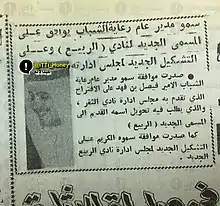 سمو مدير عام رعاية الشباب يوافق على
المسمى الجديد لنادي (الربيع) وعلى
التشكيل الجديد لمجلس ادارته
@ITTi_Honey
صدرت موافقة سمو مدير عام رعاية
الشباب الامير فيصل بن فهد على الاقتراح
الذي تقدم به مجلس ادارة نادي الثغر ،
والذي يطلب فيه تحويل اسمه القديم الى
نادي (الربيع)
كما صدرت موافقة سموه الكريم على
التشكيل الجديد لمجلس ادارة نادي الربيع
الجديد .